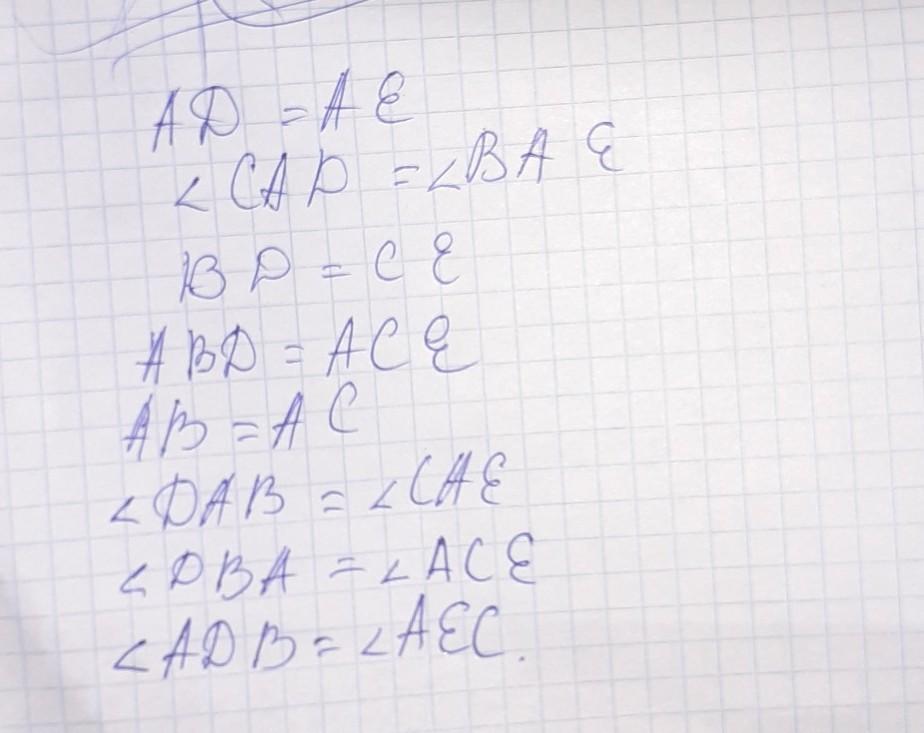 AD = AE
∠CAD = ∠BAE
BD = CE
ABD = ACE
AB = AC
∠DAB = ∠CAE
∠DBA = ∠ACE
∠ADB = ∠AEC.